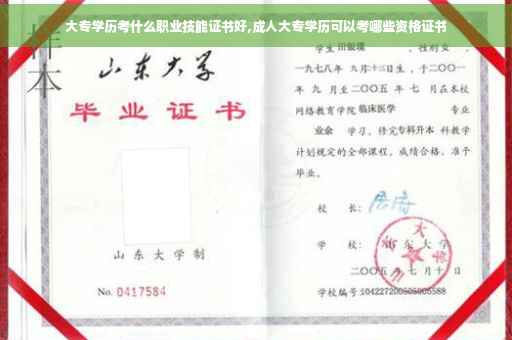 大专学历考什么职业技能证书好,成人大专学历可以考哪些资格证书
样本
山东大学
毕业证书
山东大学制
No. 0417584
学生 性别 女 ,
一九七八年 九月十三日生，于二〇〇一
年 九 月至二〇〇五 年 七 月在本校
网络教育学院 临床医学 专业
业余 学习，修完专科升本 科教学
计划规定的全部课程，成绩合格，准予
毕业。
校 长：
学 校： 山东大学
二〇〇五 年 七 月 十 日
学校编号:104227200505005588
山东大学